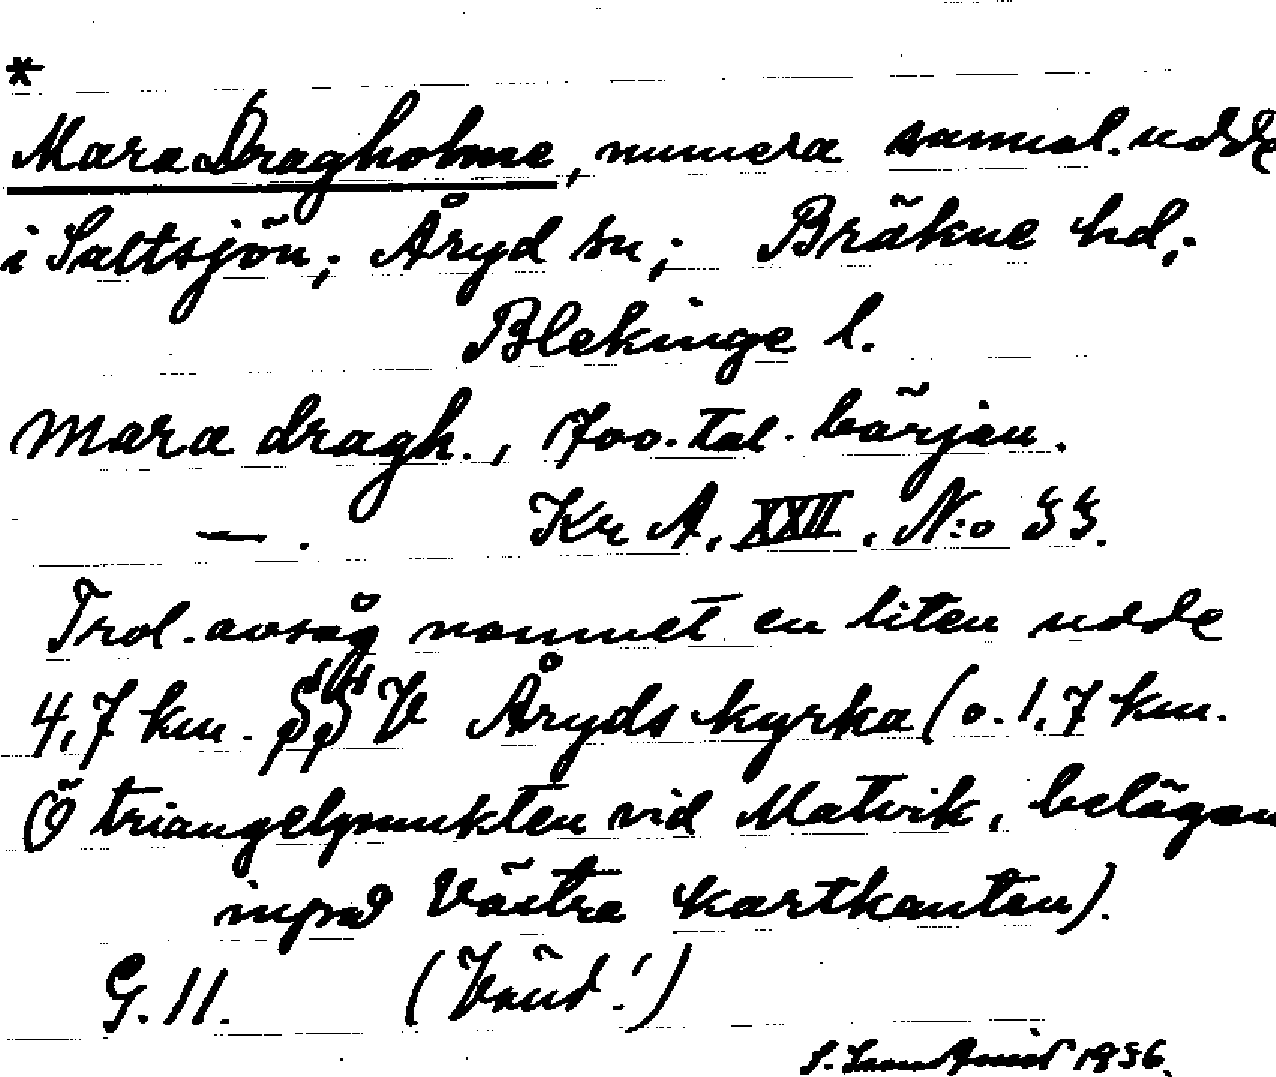 *
Mara Dragholme, numera samnal. udde
i Saltsjön; Åryd sn; Bräkne hd;
Blekinge l.
Mara dragh., 700-tal. början.
—. Kr A, XXII, N:o 33.
Trol. avsåg namnet en liten udde
4,7 km. V Åryds kyrka (o. 1,7 km.
Ö triangelpunkten vid Matvik, belägen
inpå Västra kartkanten).
G. 11. (Vänd!)
1936.